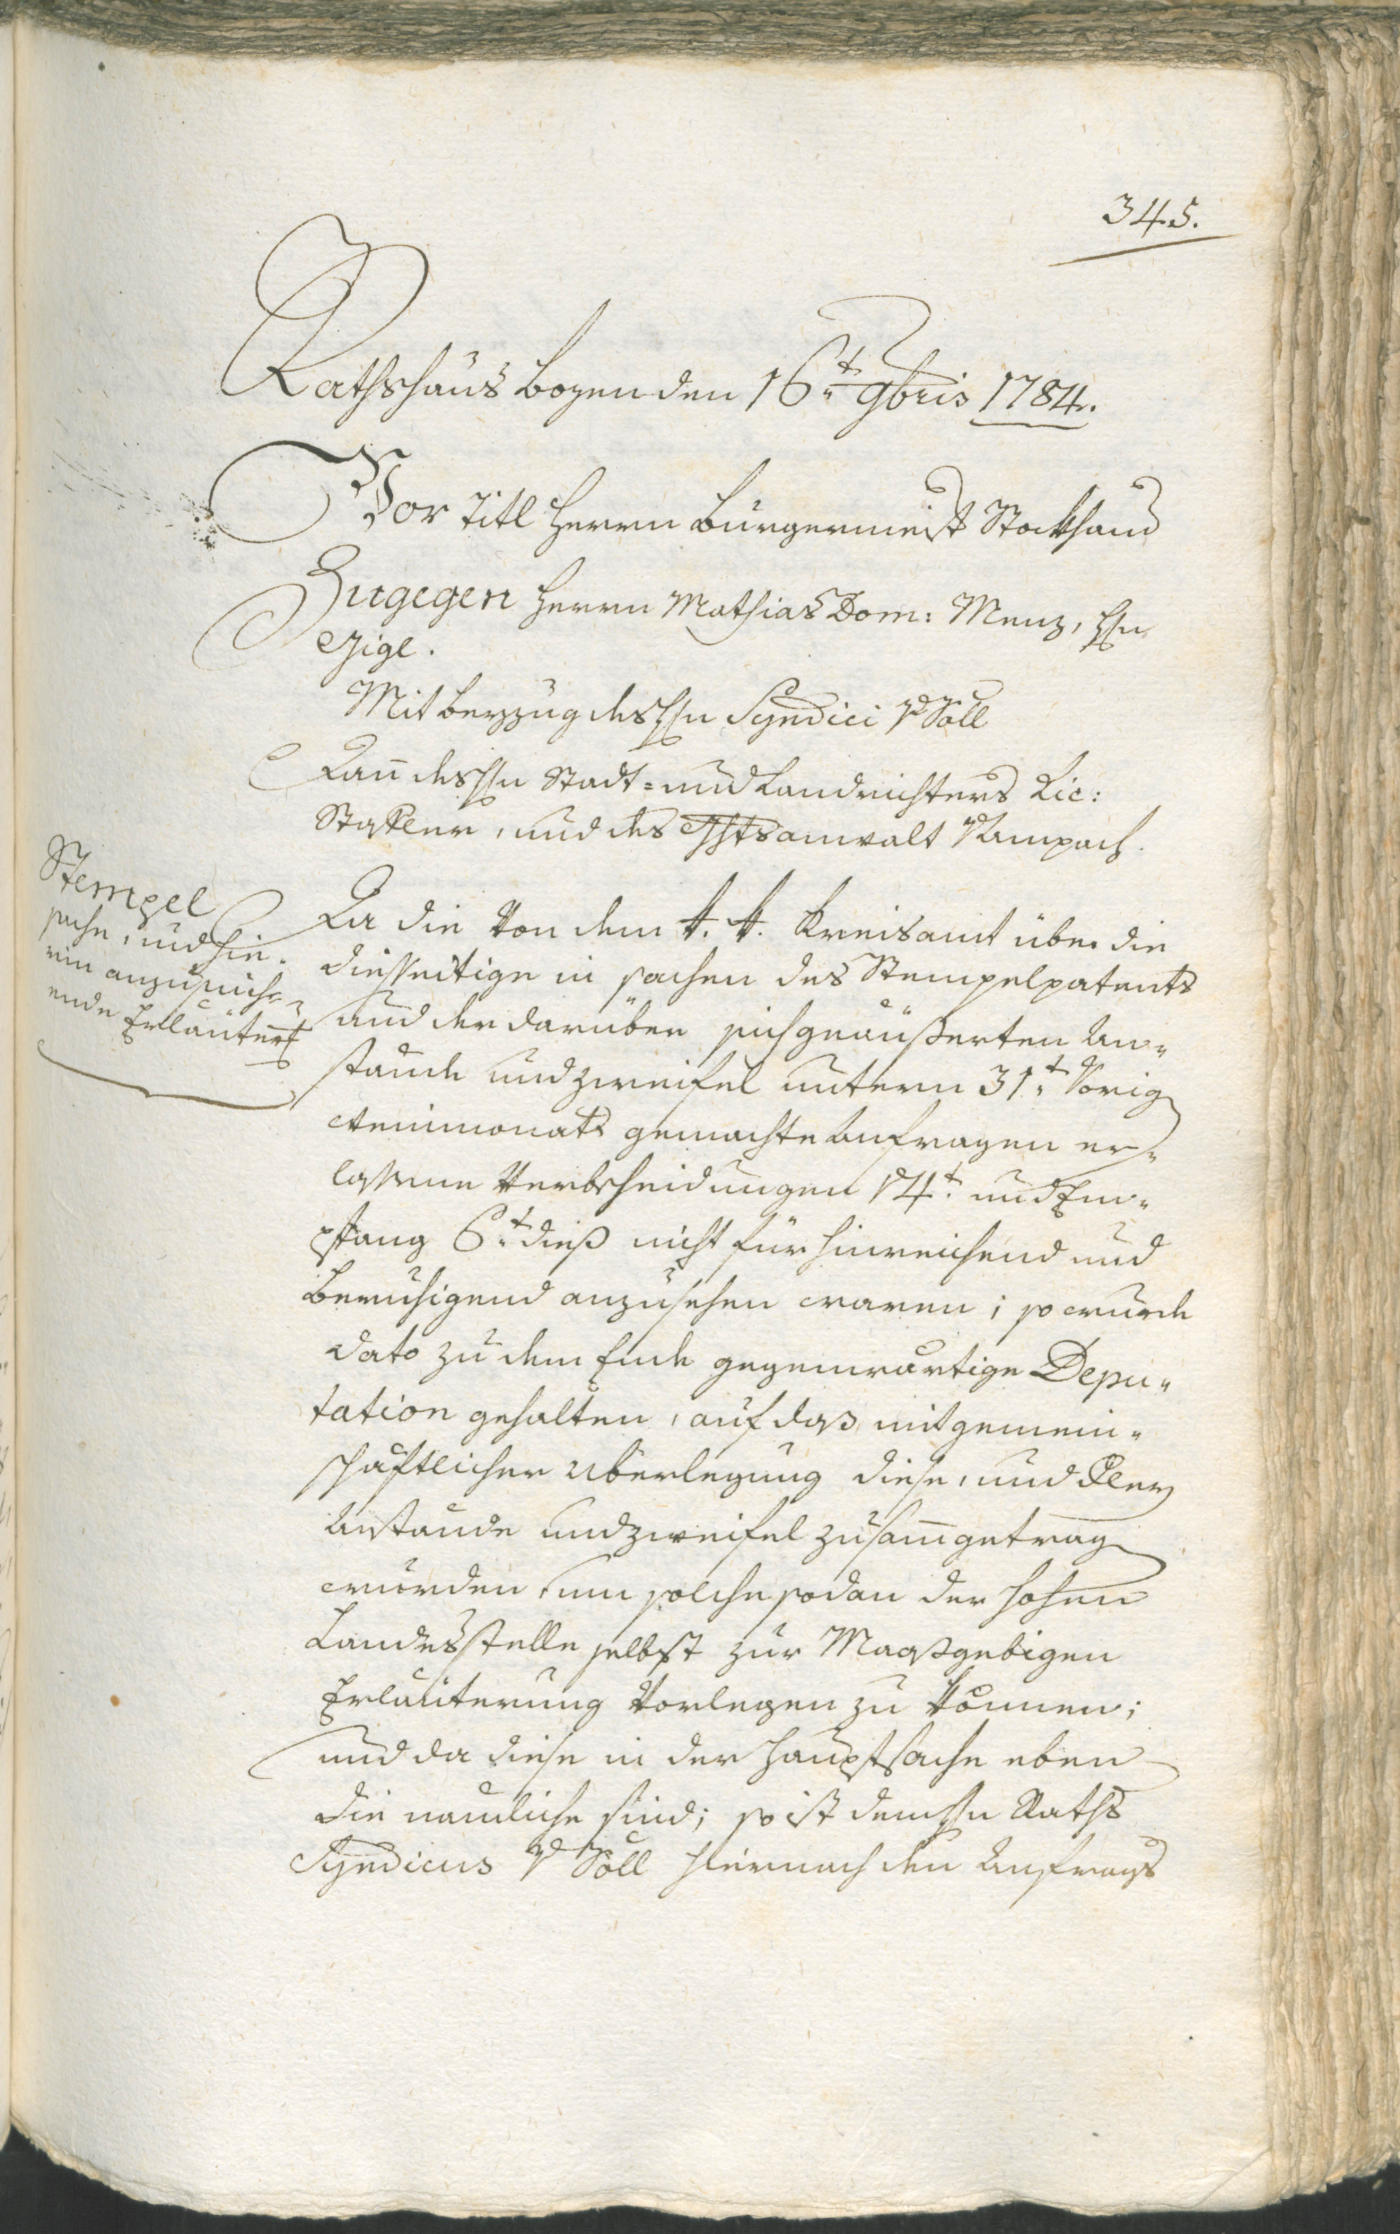 345.
Rathshaus Bozen den 16.t 9bris 1784.
Vor Titl Herrn Bürgermeist Stockhaus
Zugegen Herrn Mathias Dom: Menz, Hn
Gigl.
Mit Beyzug des Hn Syndici v Söll
Dan des Hn Stadt= und Landrichters Lic:
Stapler, und des Ghtsanwalt v Lampach.
Stempel
sache, und hie-
rin anzusuch-
ende Erläuter
Da die von dem k. k. Kreisamt über die
diesseitige in sachen des Stempelpatents
und der darüber sich geäußerten An-
stände und Zweifel unterm 31.t Vorig
Weinmonats gemachte Anfragen er-
lassene Verbscheidungen 14.t und Em-
pfang 6.t dieß nicht für hinreichend und
beruhigend anzusehen waren; so wurde
dato zu dem Ende gegenwärtige Depu-
tation gehalten, auf daß mit gemein-
schäftlicher Überlegung diese, und
Anstände und Zweifel zusamgetrag
wurden, um solche sodan der hohen
Landesstelle selbst zur Maaßgebigen
Erläuterung vorlegen zu können;
und da diese in der Hauptsache eben
die nämliche sind; so ist dem Hn Raths
Syndicus v Söll hiernach den Anfrags